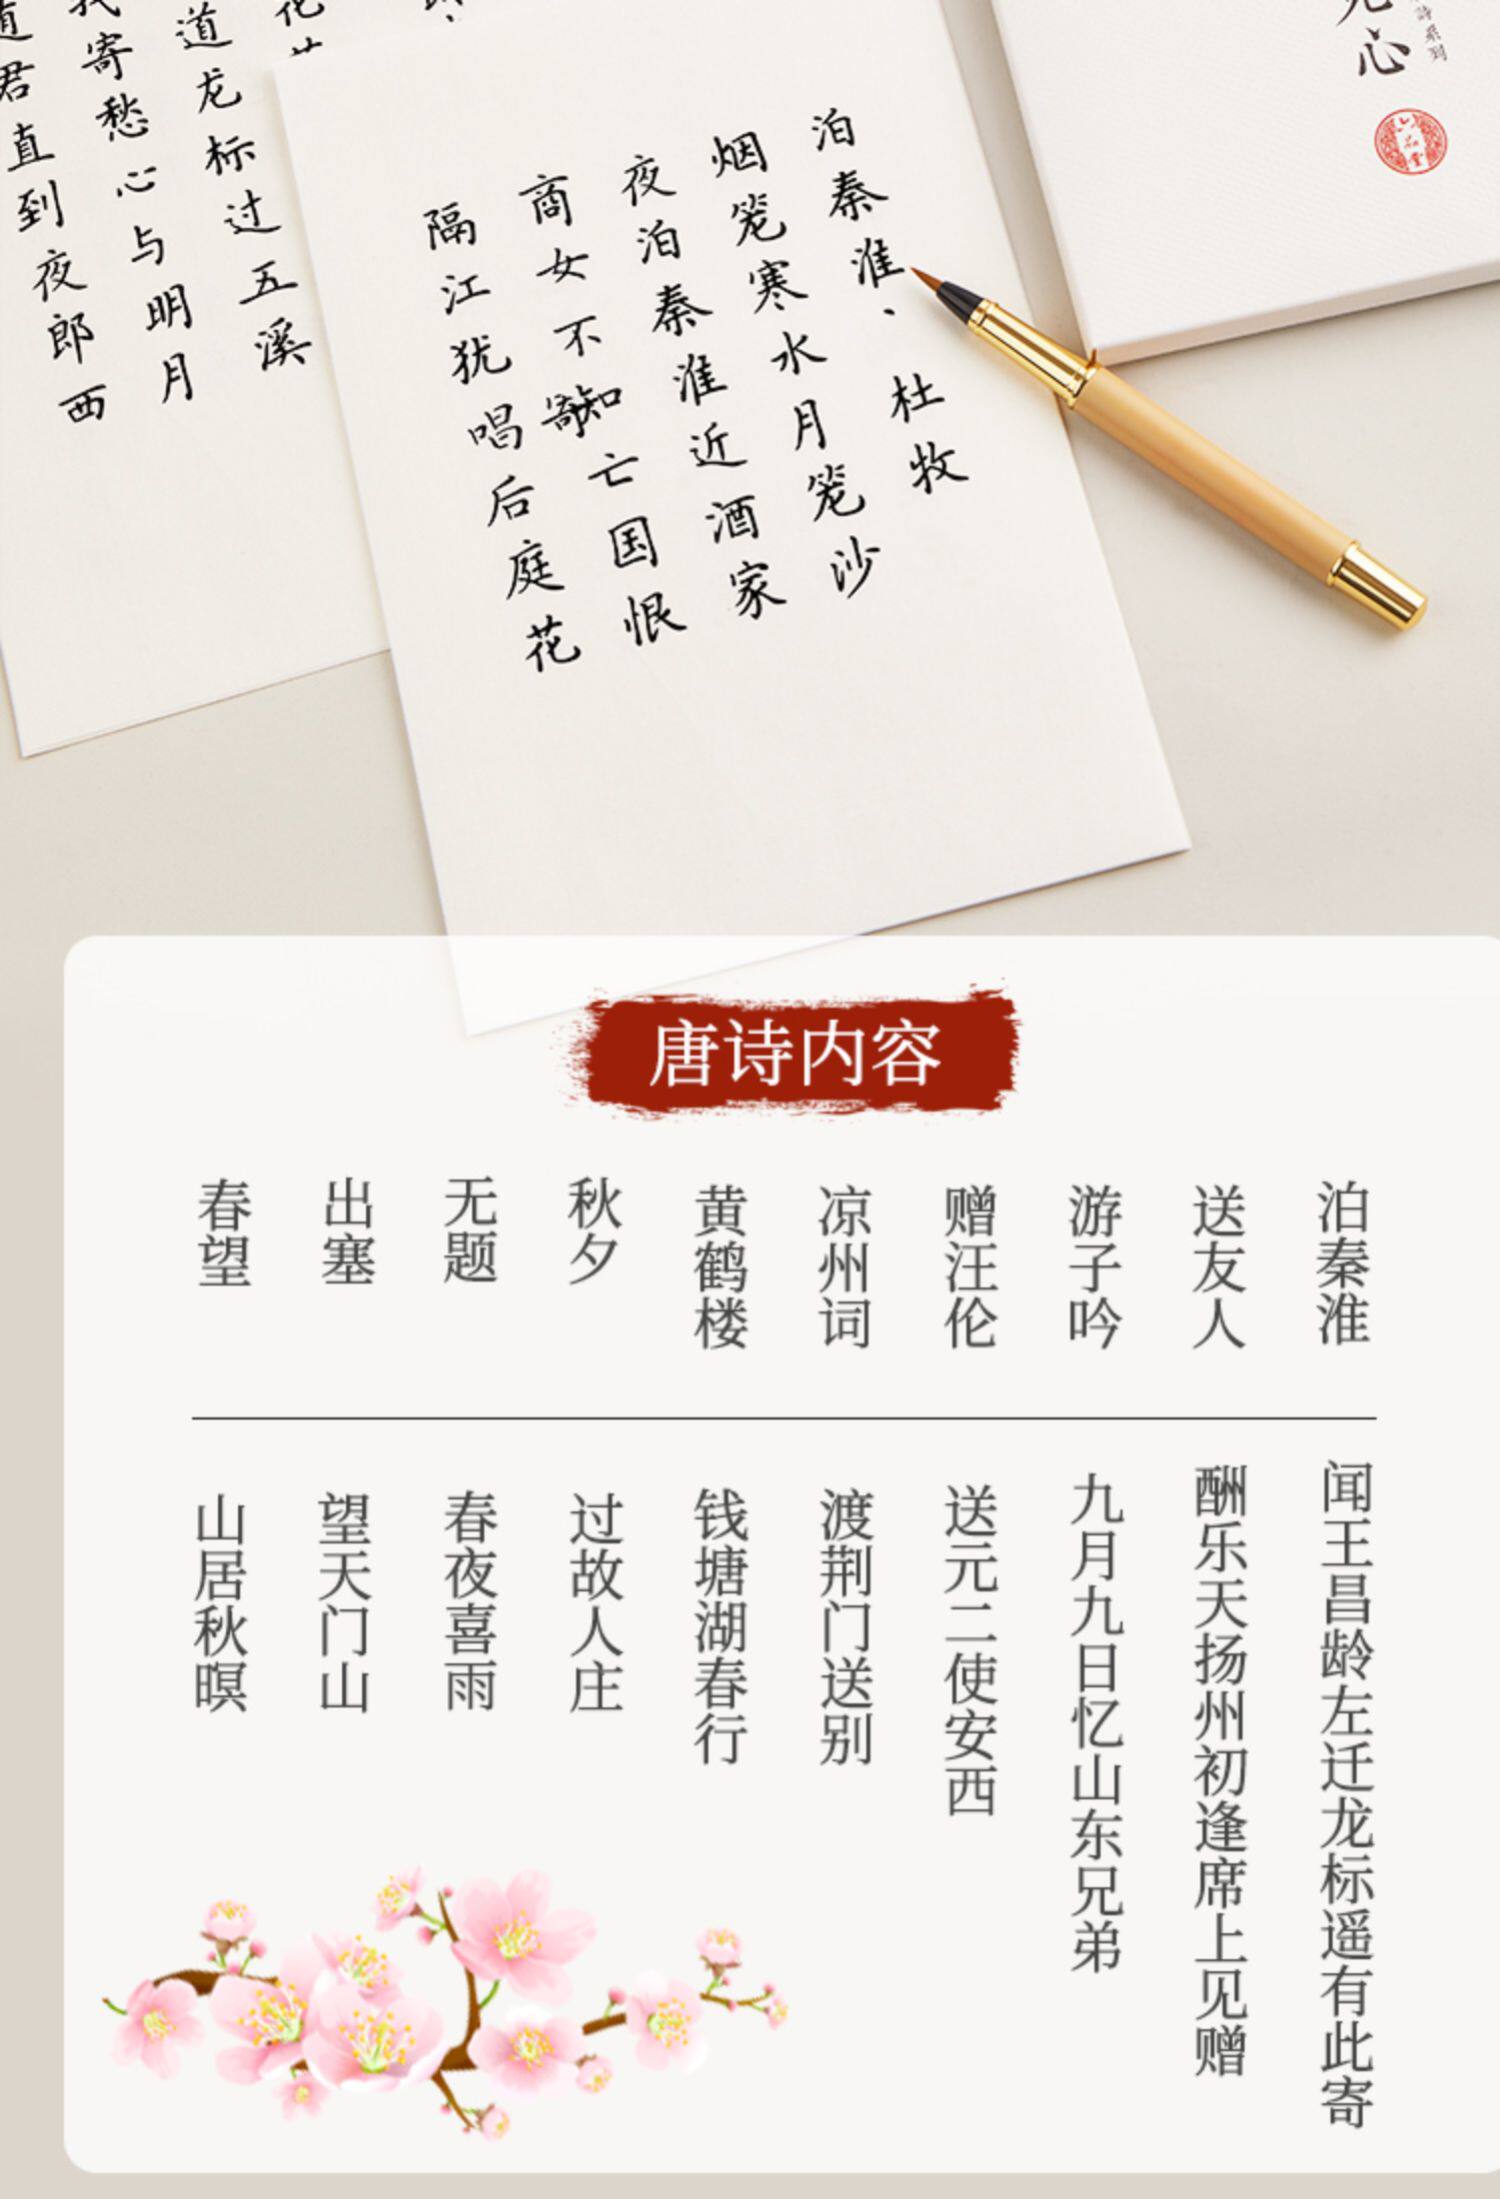 心
詩系列
泊秦淮、杜牧
烟笼寒水月笼沙
夜泊秦淮近酒家
商女不知亡国恨
隔江犹唱后庭花
道龙标过五溪
我寄愁心与明月
君直到夜郎西
唐诗内容
泊秦淮
送友人
游子吟
赠汪伦
凉州词
黄鹤楼
秋夕
无题
出塞
春望
闻王昌龄左迁龙标遥有此寄
酬乐天扬州初逢席上见赠
九月九日忆山东兄弟
送元二使安西
渡荆门送别
钱塘湖春行
过故人庄
春夜喜雨
望天门山
山居秋暝